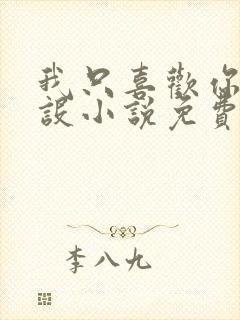 我只喜歡你
設小說免費
李八九